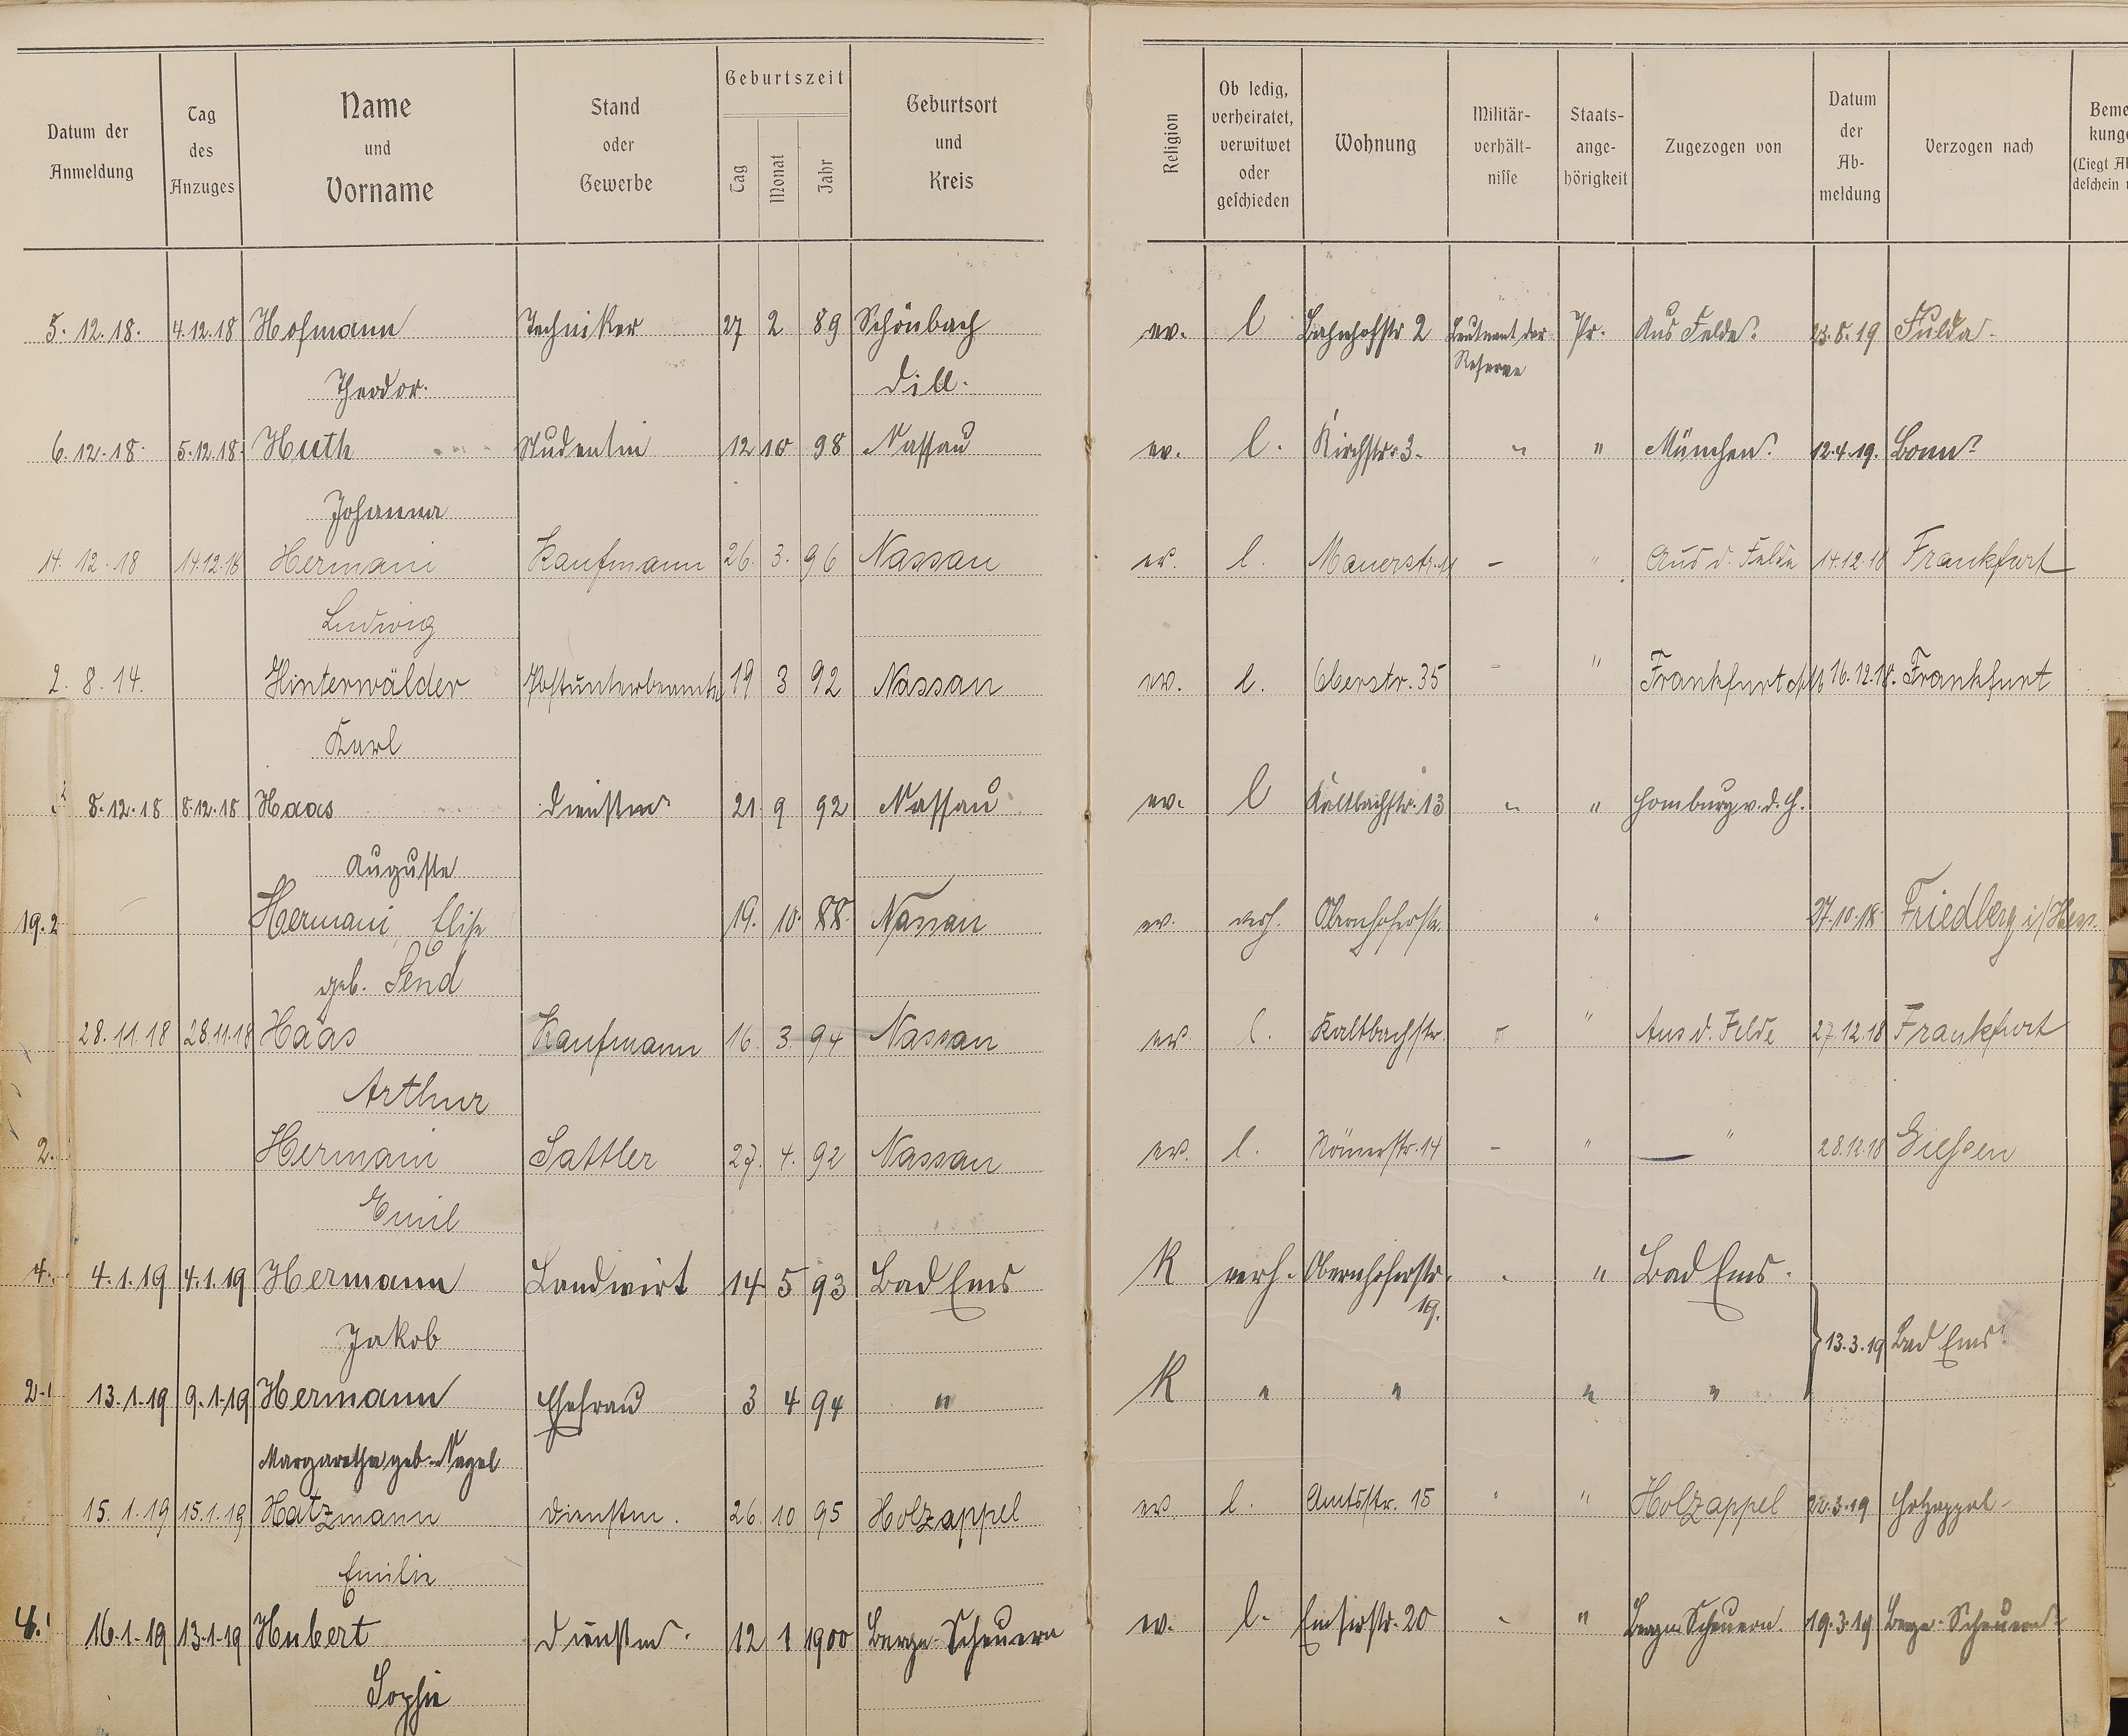 Datum der Anmeldung | Tag des Anzuges | Name und Vorname | Stand oder Gewerbe | Geburtszeit Tag Monat Jahr | Geburtsort und Kreis | Religion | Ob ledig, verheiratet, verwitwet oder geschieden | Wohnung | Militär-verhält-nisse | Staats-ange-hörigkeit | Zugezogen von | Datum der Ab-meldung | Verzogen nach
5. 12. 18. 4.12.18 Hofmann Techniker 27 2 89 Schönbach ev. l Bahnhofstr 2 Leutnant der Pr. Aus Felde. 23.8.19 Fulda
Theodor. Dill. Reserve
6. 12. 18. 5.12.18. Huth Studentin 12 10 98 Nassau ev. l. Kirchstr. 3. " München. 12.4.19. Bonn
Johanna
14. 12. 18 14.12.18 Hermani Kaufmann 26. 3. 96 Nassau ev. l. Mauerstr. - " Aus d. Felde 14.12.18 Frankfurt
Ludwig
2. 8. 14. Hinterwälder Postunterbeamter 19 3 92 Nassau ev. l. Oberstr. 35 - " Frankfurt 16.12.18. Frankfurt
Karl
8.12.18 8.12.18 Haas Dienstm. 21 9 92 Nassau ev. l Kaltbachstr. 13 " Homburg v. d. H.
Auguste
19.2 Hermani, Elise 19. 10. 88. Nassau ev. verh. Obernhoferstr. " 27.10.18. Friedberg i/Hess.
geb. Send
28.11.18 28.11.18 Haas Kaufmann 16. 3. 94 Nassau ev. l. Kaltbachstr. - " Aus d. Felde 27.12.18 Frankfurt
Arthur
2. Hermani Sattler 27. 4. 92 Nassau ev. l. Römerstr. 14 - " " 28.12.18 Giessen
Emil
4. 4.1.19 4.1.19 Hermann Landwirt 14 5 93 Bad Ems K verh. Obernhoferstr. " Bad Ems.
19.
Jakob 13.3.19 Bad Ems.
2. 13.1.19 9.1.19 Hermann Ehefrau 3 4 94 " K " " " "
Margaretha geb. Nagel
15. 1. 19 15.1.19 Hatzmann Dienstm. 26. 10 95 Holzappel ev. l. Amtsstr. 15 " Holzappel 22.3.19 Holzappel
Emilie
16.1.19 13.1.19 Hubert Dienstm. 12 1 1900 Bergn-Scheuern ev. l. Emserstr. 20 - " Bergn-Scheuern. 19.3.19 Bergn-Scheuern
Sophie